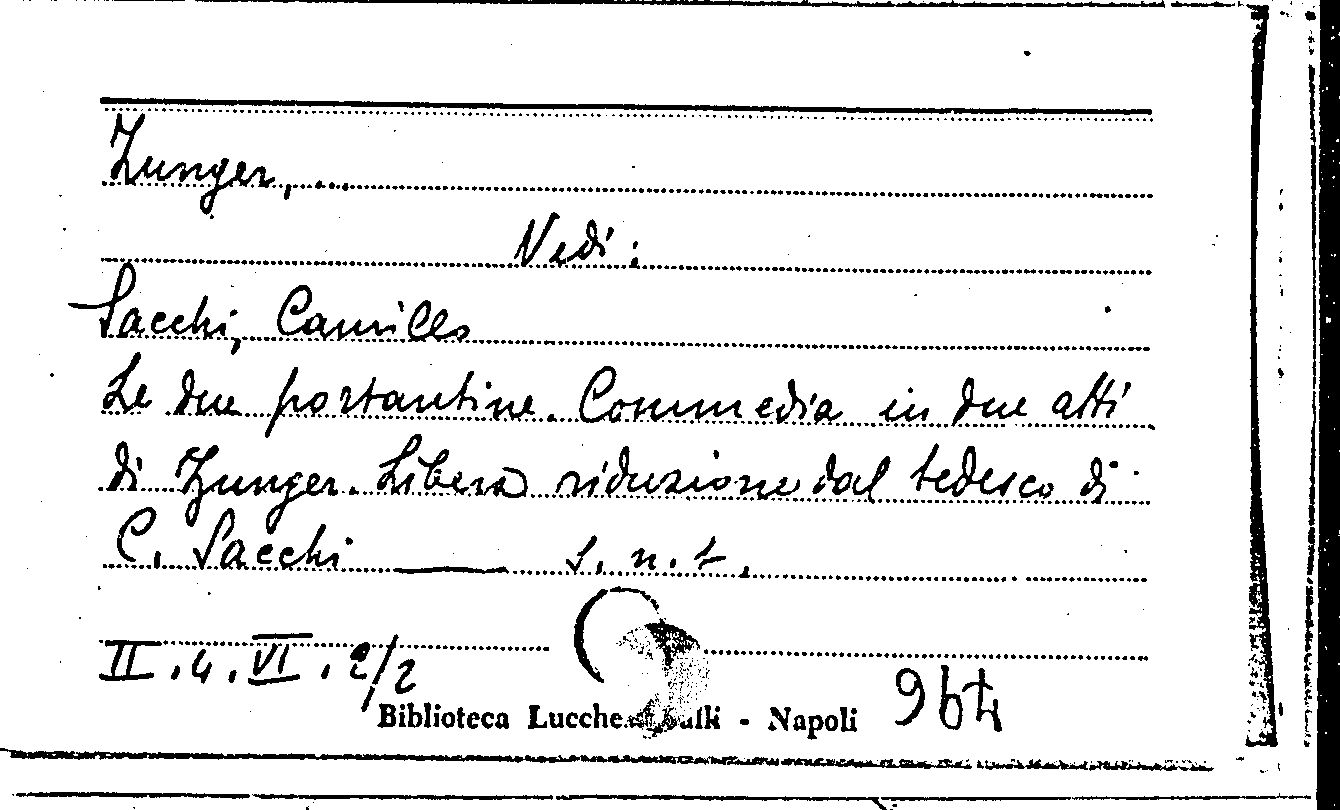 Zunger, ...
Vedi:
Sacchi, Camillo
Le due portantine. Commedia in due atti
di Zunger. Libera riduzione dal tedesco di
C. Sacchi —— s. n. t.
II. 4. VI. 2/2
Biblioteca - Napoli